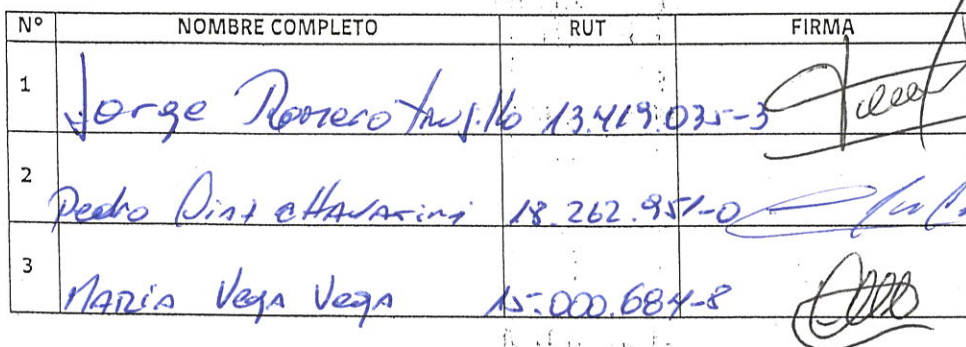 Nº NOMBRE COMPLETO RUT FIRMA
1 Jorge Romero Trujillo 13.419.035-3
2 Pedro Diaz 18.262.951-0
3 MARIA Vega Vega 15.000.684-8